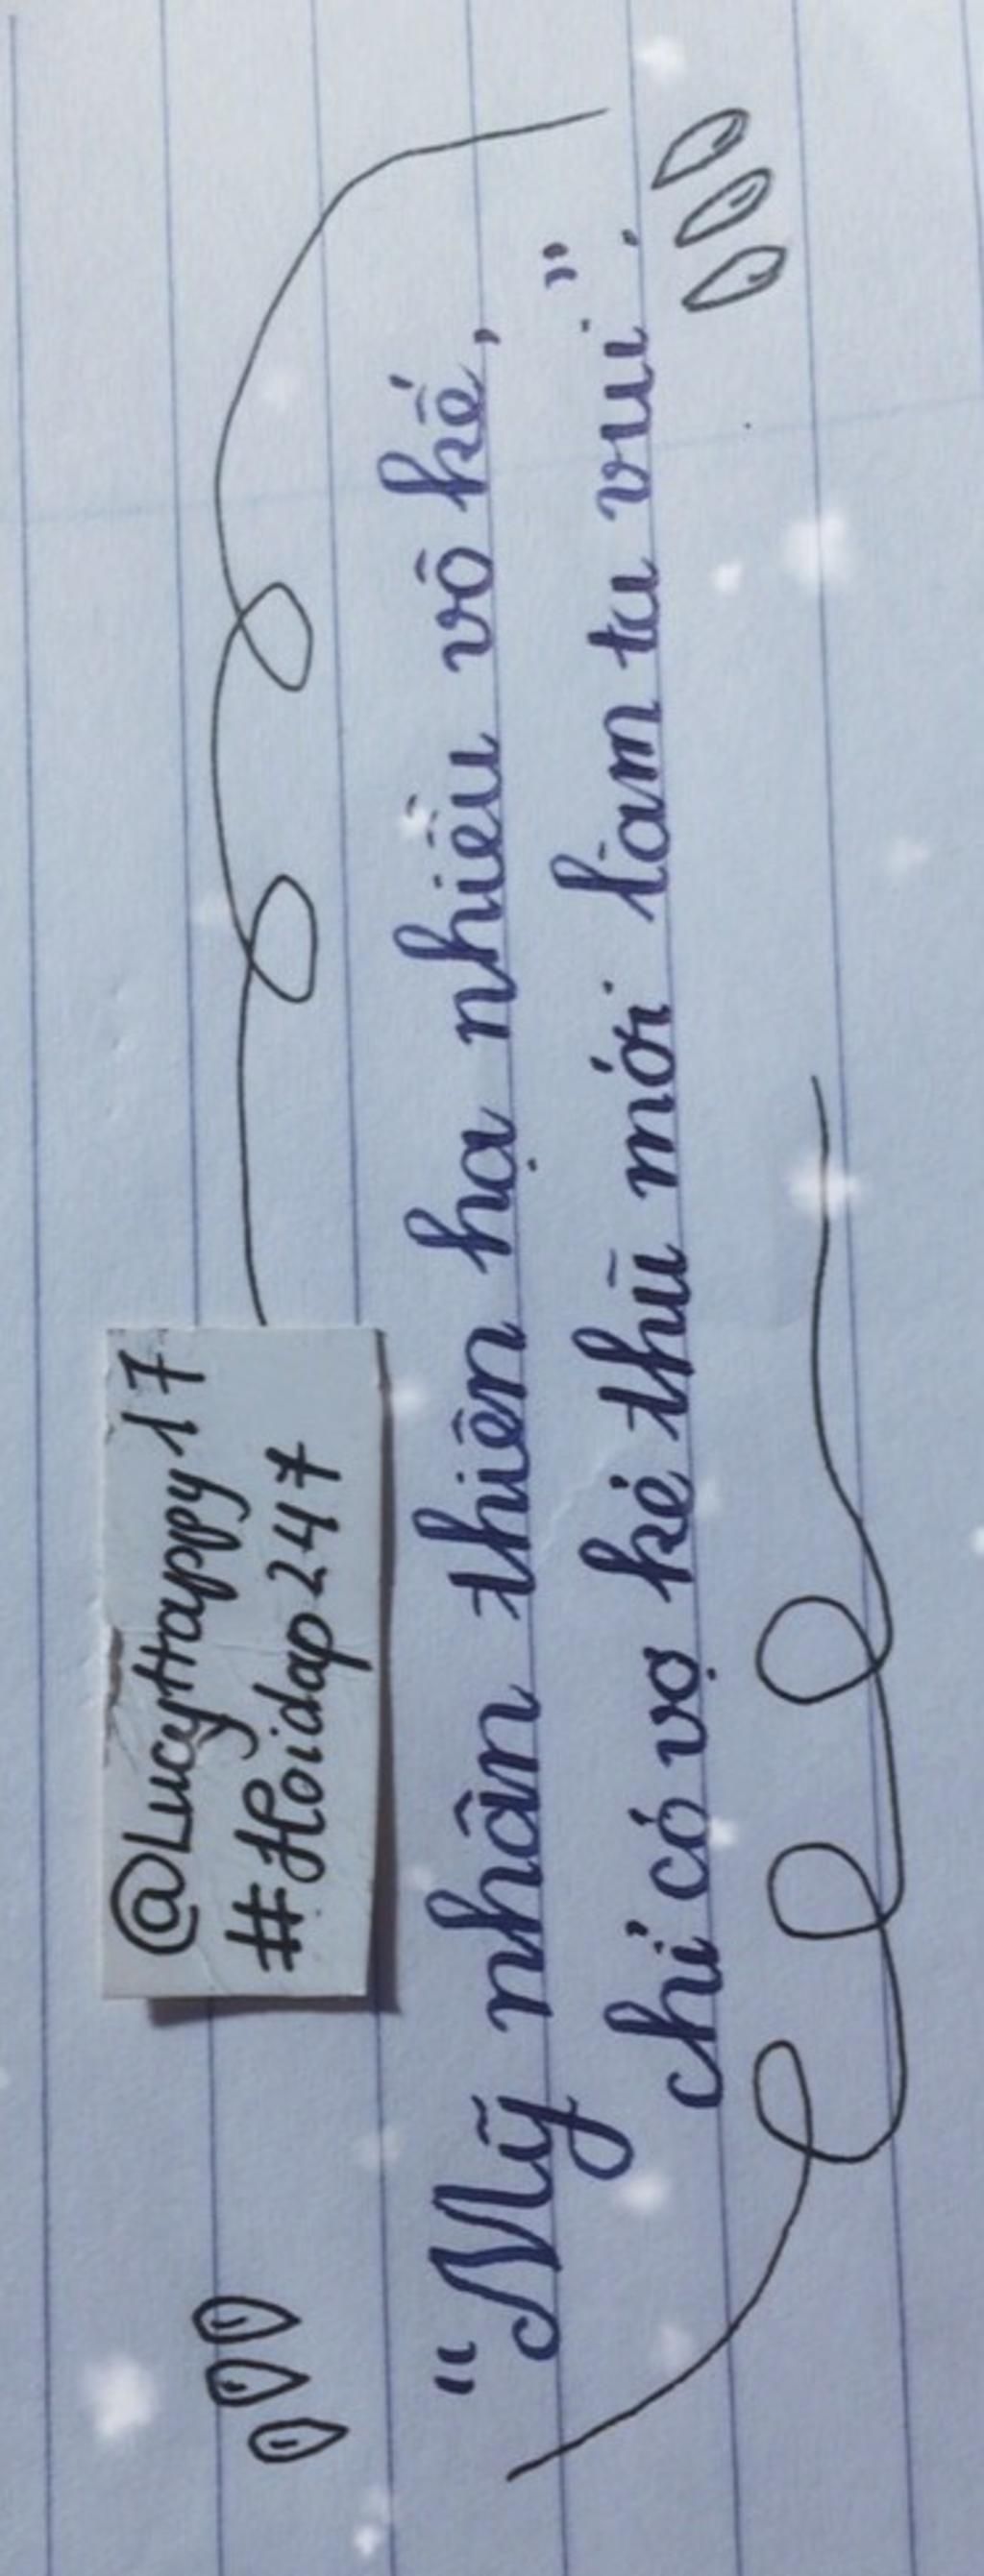 @LucyHappy17
#Hoidap247
"Mỹ nhân thiên hạ nhiều vô kể,
chỉ có vợ kẻ thù mới làm ta vui".